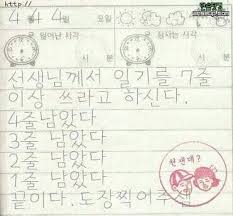 http://
4월 4일 요일
일어난 시각 잠자는 시각
시 분 시 분
선생님께서 일기를 7줄
이상 쓰라고 하신다.
4줄남았다
3줄 남았다
2줄 남았다
1줄 남았다
끝이다. 도장찍어주세
참잘해?